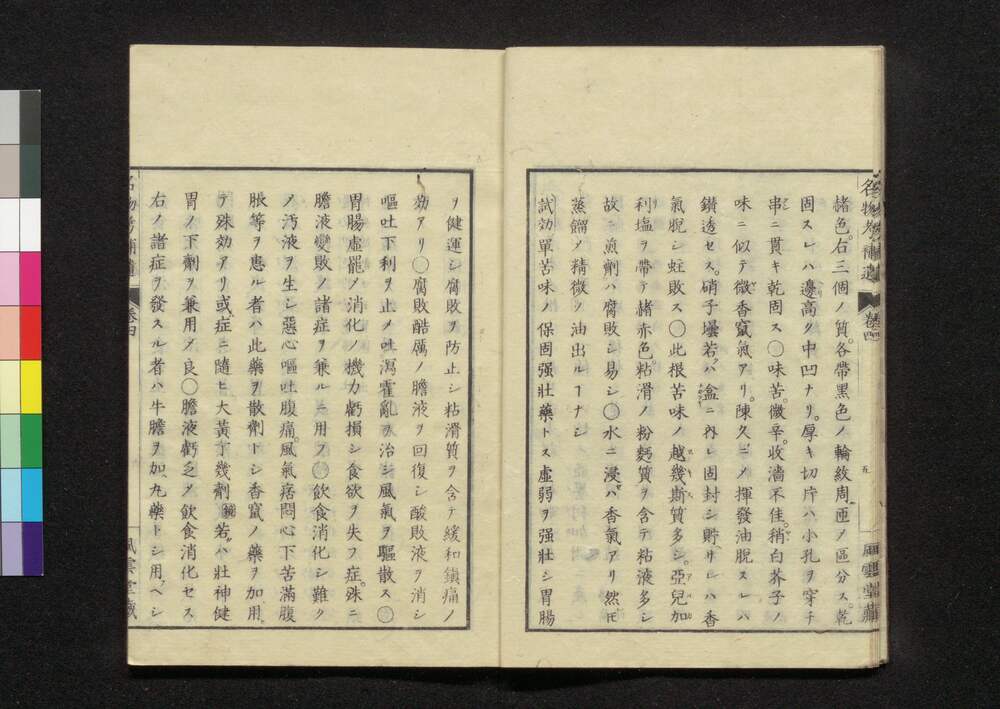 名物考補遺 卷四 風雲堂藏
赭色。右三個ノ質。各帶黑色ノ輪紋周匝ノ區分ス。乾
固スレハ邊高ク中凹ナリ。厚キ切片ハ小孔ヲ穿チ
串ニ貫キ乾固ス◯味苦。微辛。收濇不佳。稍白芥子ノ
味ニ似テ微香竄氣アリ。陳久ニメ揮發油脫スレハ
鑽透セス。硝子壜若クハ盒ニ內レ固封シ貯サレハ香
氣脫シ蛀敗ス◯此根苦味ノ越幾斯質多シ。亞兒加
利塩ヲ帶テ赭赤色。粘滑ノ粉麪質ヲ含テ粘液多シ
故ニ煎劑ハ腐敗シ易シ◯水ニ浸セハ香氣アリ然𪜈
蒸餾ノ精微ノ油出ルヿナシ
試効單苦味ノ保固强壯藥トス虛弱ヲ强壯シ胃腸
ヲ健運シ腐敗ヲ防止シ粘滑質ヲ含テ緩和鎭痛ノ
効アリ◯腐敗酷厲ノ膽液ヲ回復シ酸敗液ヲ消シ
嘔吐下利ヲ止メ吐瀉霍亂ヲ治シ風氣ヲ驅散ス◯
胃腸虛罷ノ消化ノ機力虧損シ食欲ヲ失フ症。殊ニ
膽液變敗ノ諸症ヲ兼ルニ用フ◯飲食消化シ難ク
ノ汚液ヲ生シ惡心嘔吐腹痛。風氣痞悶心下苦滿腹
脹等ヲ患ル者ハ此藥ヲ散劑トシ香竄ノ藥ヲ加用。
テ殊効アリ或症ニ隨ヒ大黃丁幾劑若クハ壯神健
胃ノ下劑ヲ兼用メ良◯膽液虧乏メ飲食消化セス
右ノ諸症ヲ發スル者ハ牛膽ヲ加。丸藥トシ用ヘシ
名物考補遺 卷四 風雲堂藏